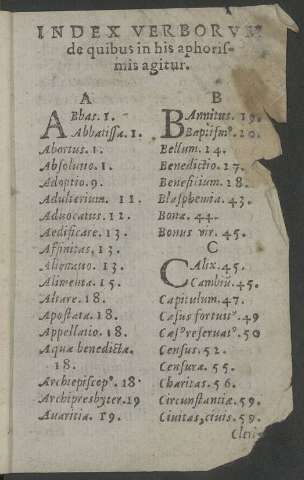 INDEX VERBORVM
de quibus in his aphoris-
mis agitur.
A
ABbas. 1.
Abbatissæ. 1.
Abortus. 1.
Absolutio. 1.
Adoptio. 9.
Adulterium. 11
Aduocatus. 12.
Aedificare. 13.
Affinitas. 13.
Alienatio. 13.
Alimenta. 15.
Altare. 18.
Apostata. 18.
Appellatio. 18.
Aquæ benedictæ.
18.
Archiepiscopꝰ. 18.
Archipresbyter. 19
Auaritia. 19.
B
BAnnitus. 19.
Baptismꝰ. 20.
Bellum. 24.
Benedictio. 27.
Beneficium. 28.
Blasphemia. 43.
Bona. 44.
Bonus vir. 45.
C
CAlix. 45.
Cambiũ. 45.
Capitulum. 47.
Casus fortuitꝰ. 49
Casꝰ reseruatꝰ. 50
Census. 52.
Censura. 55.
Charitas. 56.
Circunstantiæ. 59.
Ciuitas, ciuis. 59.